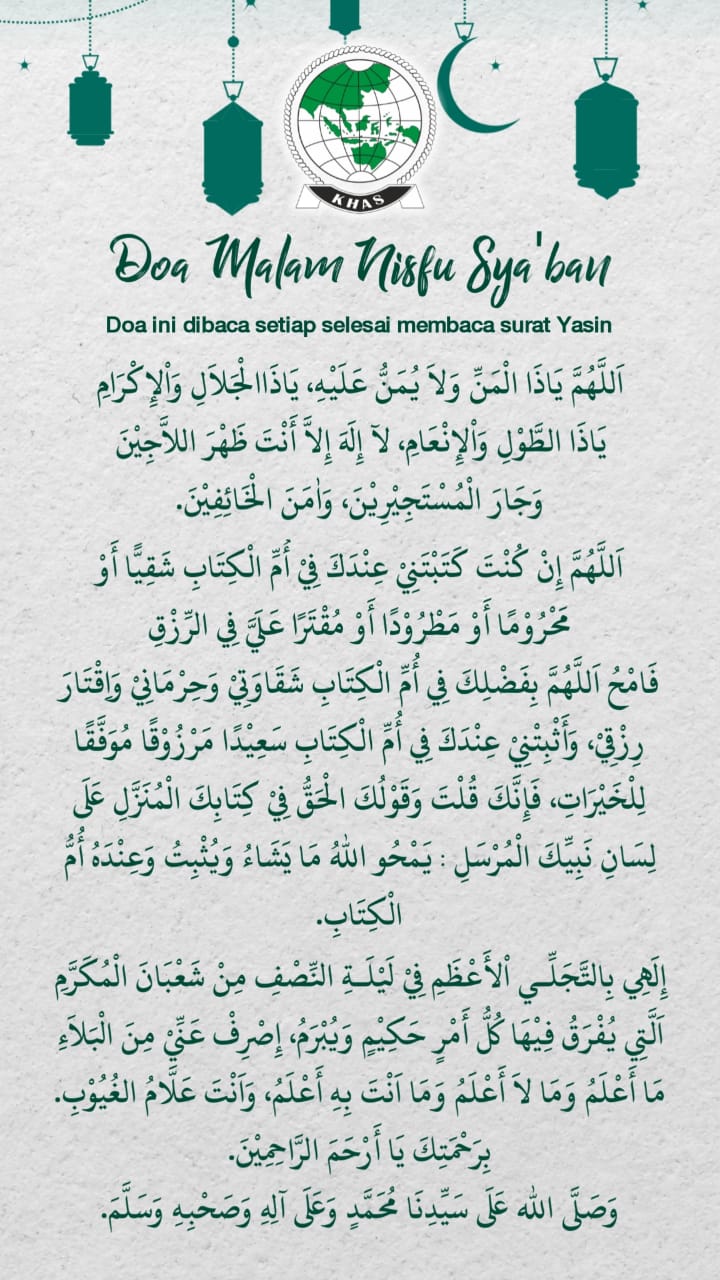 KHAS
Doa Malam Nisfu Sya'ban
Doa ini dibaca setiap selesai membaca surat Yasin
اَللَّهُمَّ يَاذَا الْمَنِّ وَلاَ يُمَنُّ عَلَيْهِ، يَاذَاالْجَلاَلِ وَاْلإِكْرَامِ
يَاذَا الطَّوْلِ وَاْلإِنْعَامِ، لآ إِلَهَ إِلاَّ أَنْتَ ظَهْرَ اللاَّجِيْنَ
وَجَارَ الْمُسْتَجِيْرِيْنَ، وَاٰمَنَ الْخَائِفِيْنَ.
اَللَّهُمَّ إِنْ كُنْتَ كَتَبْتَنِيْ عِنْدَكَ فِيْ أُمِّ الْكِتَابِ شَقِيًّا أَوْ
مَحْرُوْمًا أَوْ مَطْرُوْدًا أَوْ مُقْتَرًا عَلَيَّ فِي الرِّزْقِ
فَامْحُ اَللَّهُمَّ بِفَضْلِكَ فِي أُمِّ الْكِتَابِ شَقَاوَتِيْ وَحِرْمَانِيْ وَاِقْتَارَ
رِزْقِيْ، وَأَثْبِتْنِيْ عِنْدَكَ فِي أُمِّ الْكِتَابِ سَعِيْدًا مَرْزُوْقًا مُوَفَّقًا
لِلْخَيْرَاتِ، فَإِنَّكَ قُلْتَ وَقَوْلُكَ الْحَقُّ فِيْ كِتَابِكَ الْمُنَزَّلِ عَلَى
لِسَانِ نَبِيِّكَ الْمُرْسَلِ : يَمْحُو اللهُ مَا يَشَاءُ وَيُثْبِتُ وَعِنْدَهُ أُمُّ
الْكِتَابِ.
إِلَهِي بِالتَّجَلِّــي اْلأَعْظَمِ فِيْ لَيْلَــةِ النِّصْفِ مِنْ شَعْبَانَ الْمُكَرَّمِ
اَلَّتِي يُفْرَقُ فِيْهَا كُلُّ أَمْرٍ حَكِيْمٍ وَيُبْرَمُ، إِصْرِفْ عَنِّيْ مِنَ الْبَلَاءِ
مَا أَعْلَمُ وَمَا لاَ أَعْلَمُ وَمَا اَنْتَ بِهِ أَعْلَمُ، وَاَنْتَ عَلَّامُ الغُيُوْبِ.
بِرَحْمَتِكَ يَا أَرْحَمَ الرَّاحِمِيْنَ.
وَصَلَّى الله عَلَى سَيِّدِنَا مُحَمَّدٍ وَعَلَى آلِهِ وَصَحْبِهِ وَسَلَّمَ.